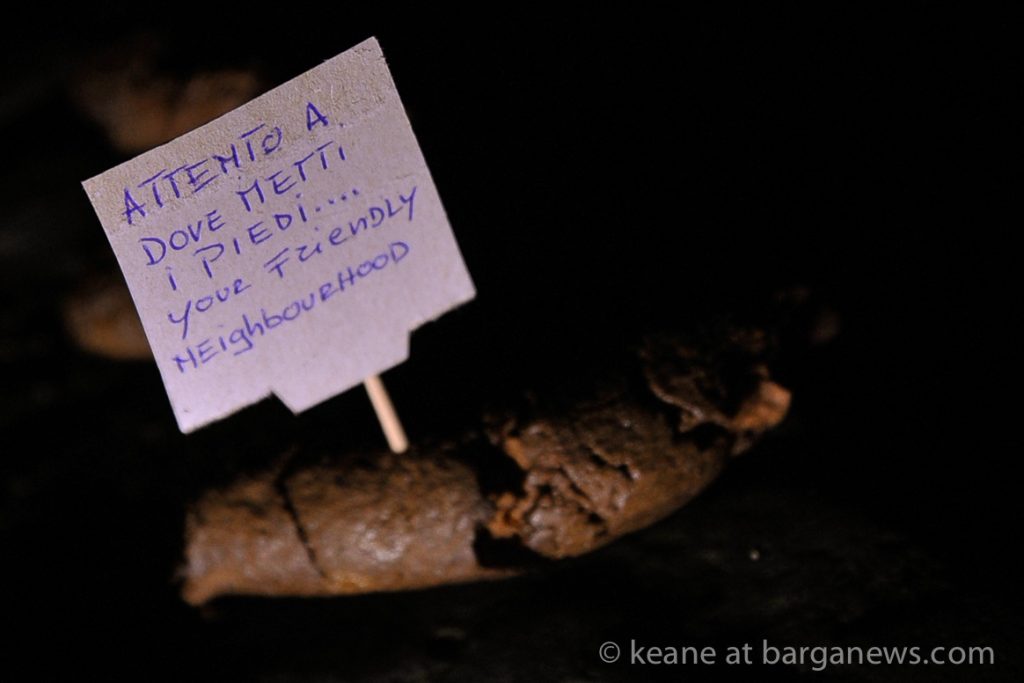 ATTENTO A
DOVE METTI
i PIEDI....
YOUR FRiEnDLY
NEighbouRHOOD
© keane at barganews.com